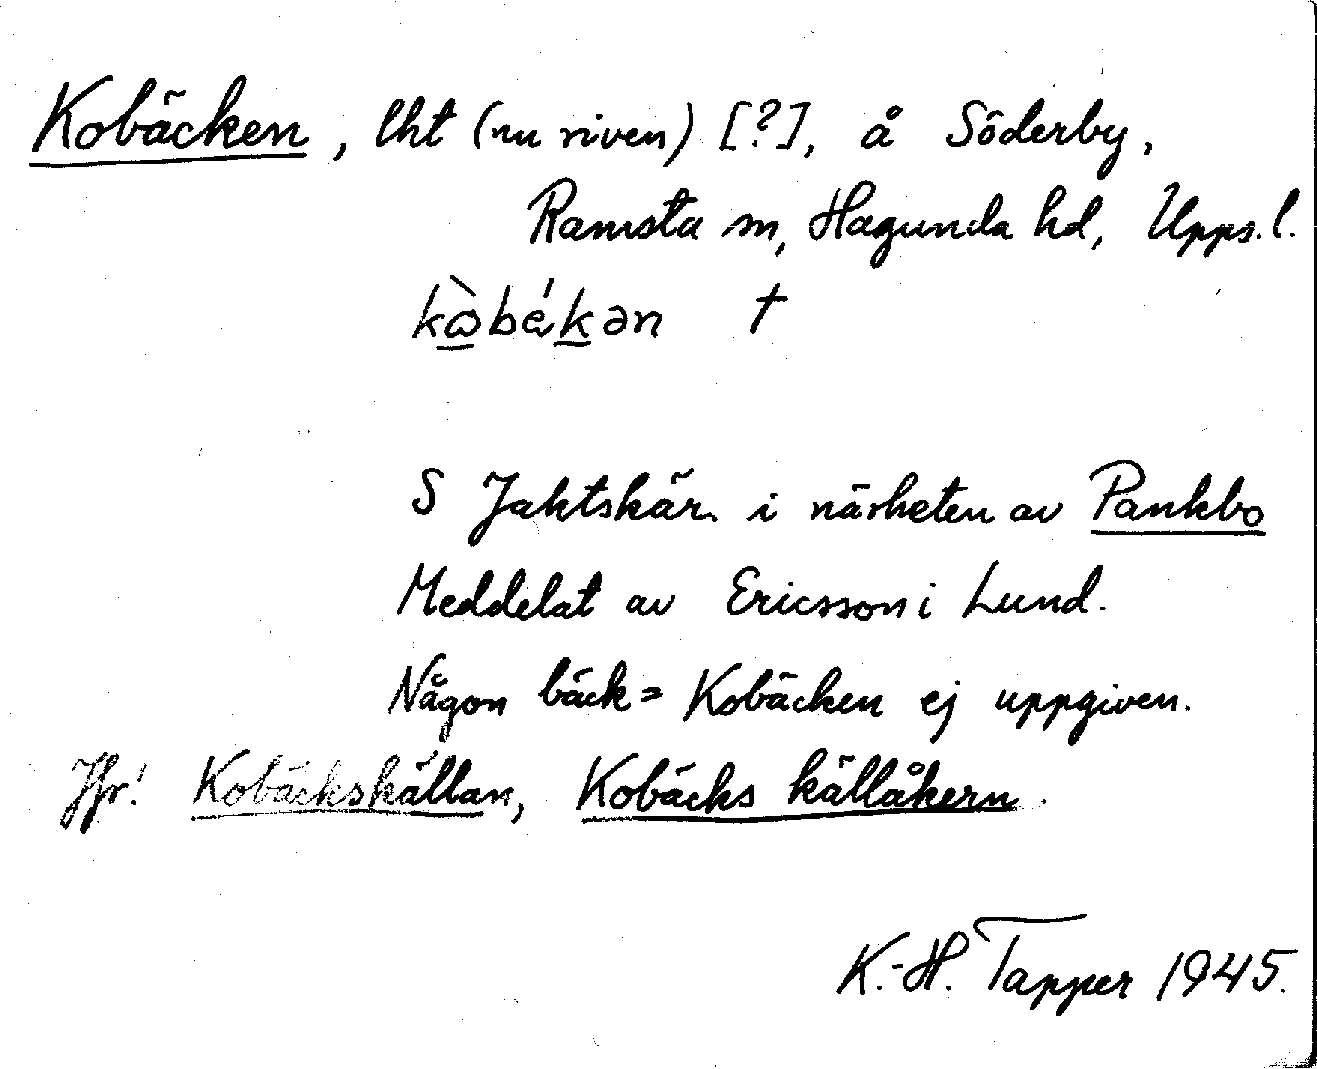 Kobäcken, lht (nu riven) [?], å Söderby,
Ramsta sn, Hagunda hd, Upps. l.
kòbékən †
S Jaktskär. i närheten av Pankbo
Meddelat av Ericsson i Lund.
Någon bäck = Kobäcken ej uppgiven.
Jfr! Kobäckskällan, Kobäcks källåkern.
K.-H. Tapper 1945.